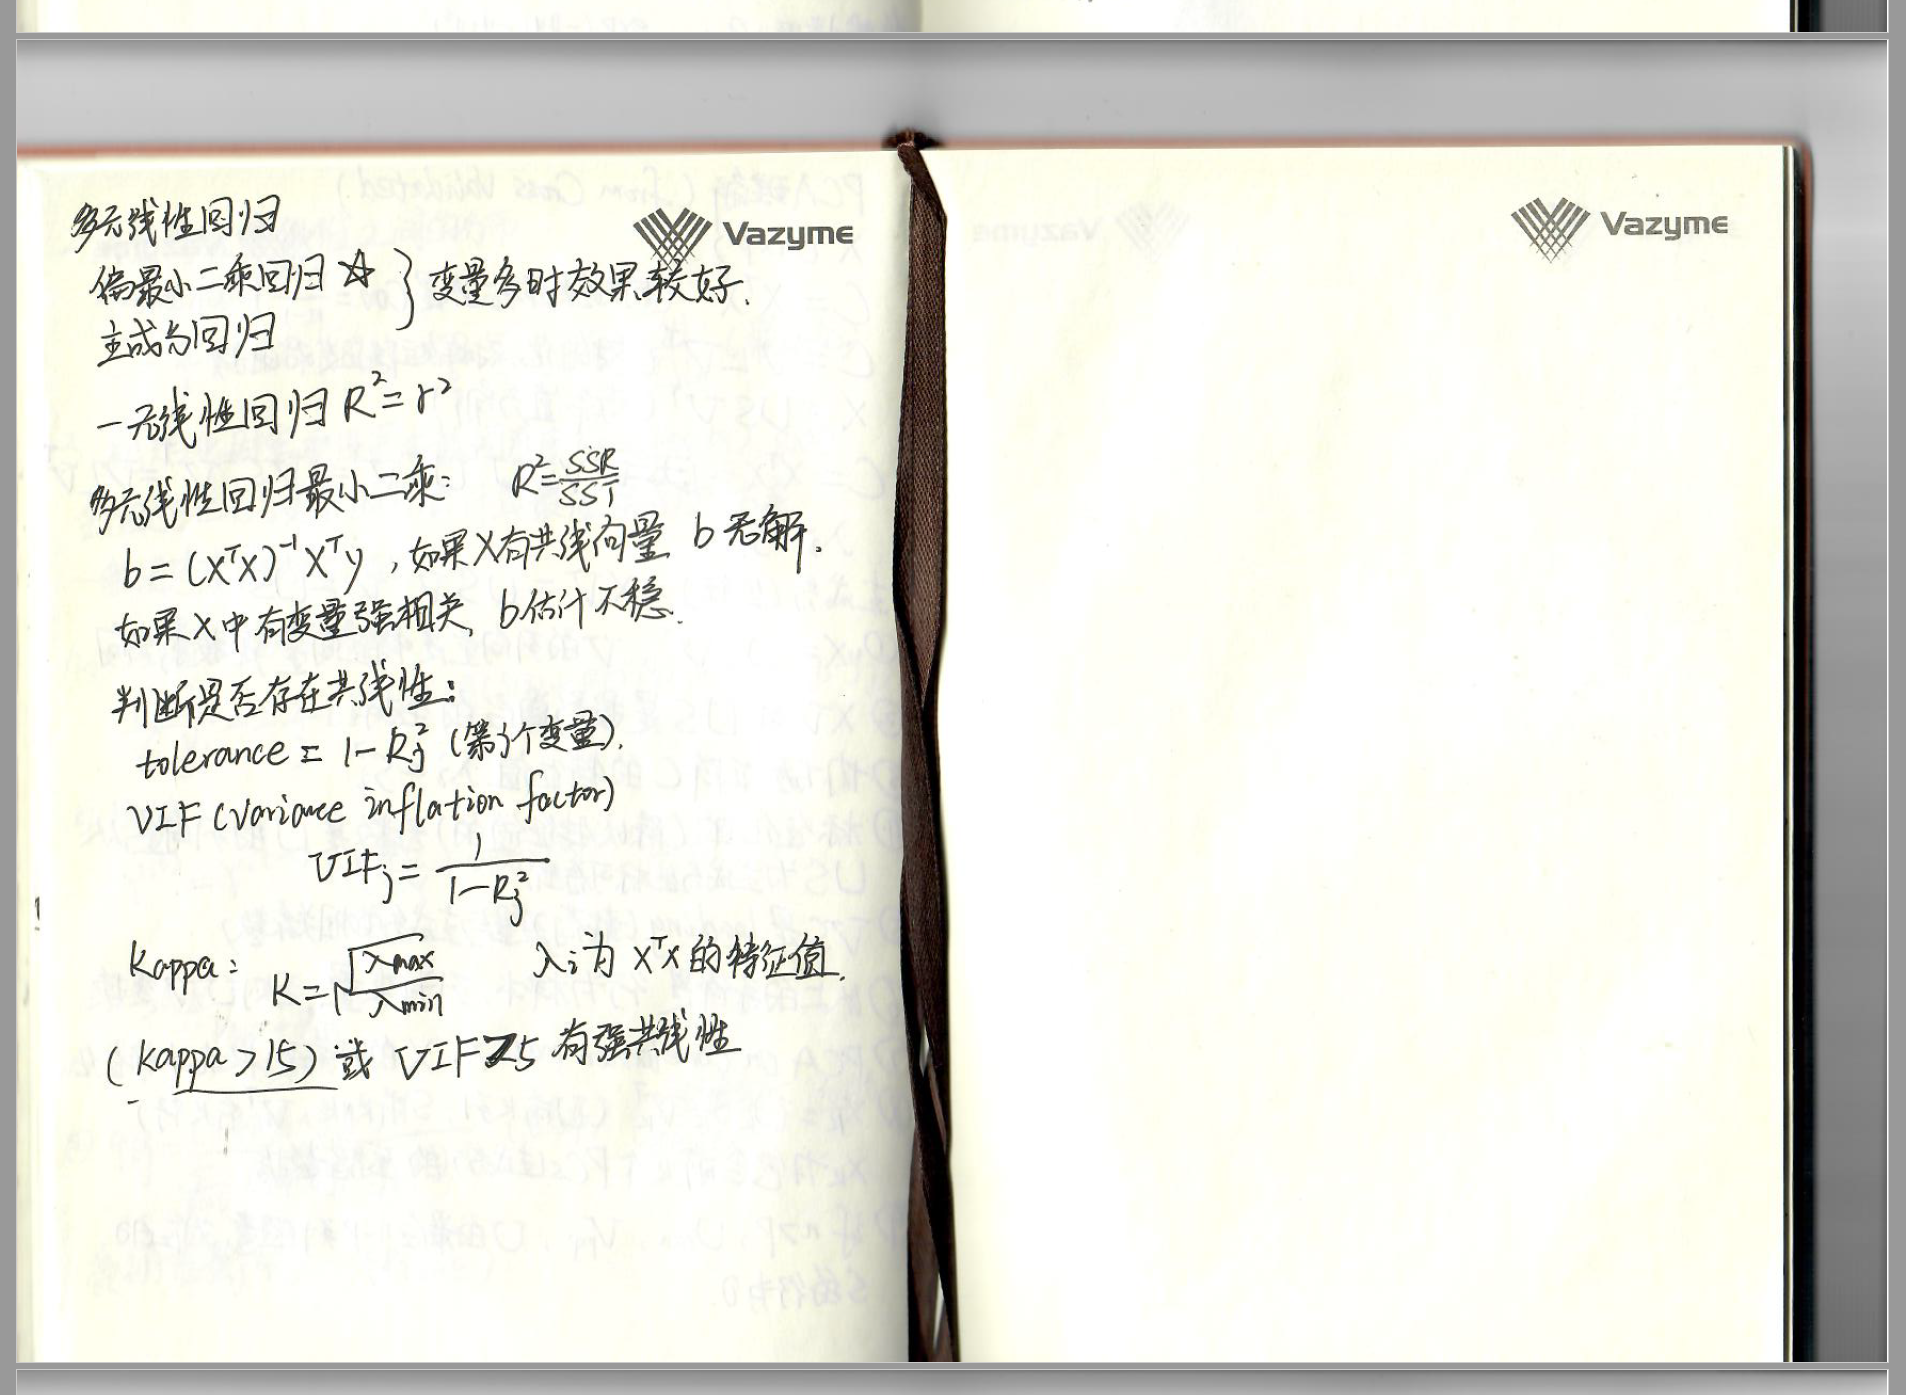 多元线性回归
Vazyme
偏最小二乘回归 ☆ } 变量多时效果较好.
主成分回归
一元线性回归 R² = r²
多元线性回归最小二乘: R² = SSR/SST
b = (XᵀX)⁻¹Xᵀy , 如果X有共线向量 b无解.
如果X中有变量强相关, b估计不稳.
判断是否存在共线性:
tolerance = 1-Rj² (第j个变量).
VIF (variance inflation factor)
VIFj = 1/(1-Rj²)
Kappa: K = √(λmax/λmin) λi为XᵀX的特征值.
(kappa > 15) 或 VIF≥5 有强共线性
Vazyme